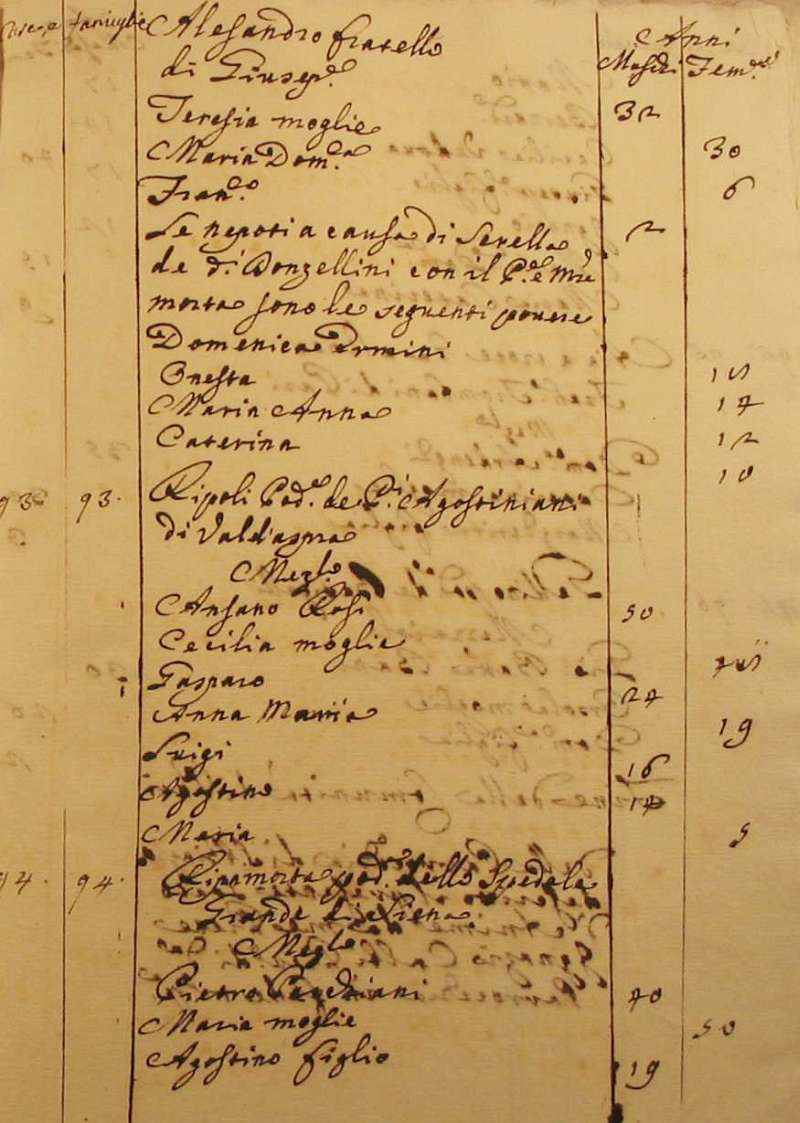 Case, e famiglie Anni
Alesandro fratello Maschi Fem.e
di Giusep.e 32
Teresia moglie 30
Maria Dom.ca 6
Fran.co 2
Le nepoti a causa di
de di Donzellini con il P.e e M.e
morta sono le seguenti povere
Domenica Ermini 15
Onesta 14
Maria Anna 12
Caterina 10
93 93. Ripoli Pod.e de P.i Agostiniani
di Valdaspra
Mezl.
Ansano Rosi 50
Cecilia moglie 45
Gasparo 24
Anna Maria 19
Luigi 16
Agostino 14
Maria 5
94. 94. Ripamorta pod.e dello Spedale
Grande di Siena
Mezl.
Pietro 40
Maria moglie 50
Agostino figlio 19